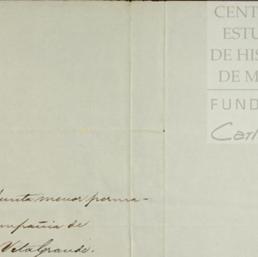 CENT
ESTU
DE HIS
DE M
FUND
Carl
Junta menor perma-
ompañia de
Veta Grande.